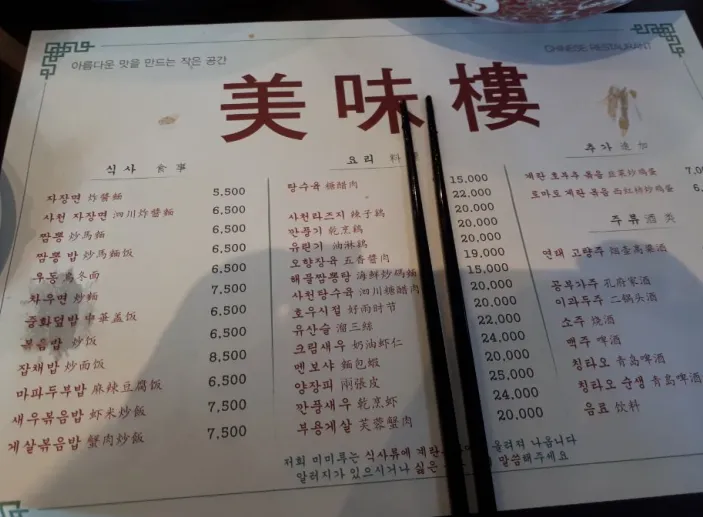 아름다운 맛을 만드는 작은 공간
CHINESE RESTAURANT
美味樓
식사 食事
자장면 炸醬麵 5,500
사천 자장면 泗川炸醬麵 6,500
짬뽕 炒馬麵 6,500
짬뽕 밥 炒馬麵饭 6,500
우동 烏冬面 6,500
차우면 炒麵 7,500
중화덮밥 中華盖饭 6,500
볶음밥 炒饭 6,500
잡채밥 炒面饭 8,500
마파두부밥 麻辣豆腐饭 6,500
새우볶음밥 虾米炒飯 7,500
게살볶음밥 蟹肉炒飯 7,500
요리 料
탕수육 糖醋肉
사천라즈지 辣子鷄
깐풍기 乾烹鷄
유린기 油淋鷄
오향장육 五香醬肉
해물짬뽕탕 海鮮炒碼麵
사천탕수육 泗川糖醋肉
호우시절 好雨时节
유산슬 溜三絲
크림새우 奶油虾仁
멘보샤 麵包蝦
양장피 兩張皮
깐풍새우 乾烹虾
부용게살 芙蓉蟹肉
15,000
22,000
20,000
20,000
20,000
19,000
15,000
20,000
20,000
22,000
24,000
20,000
25,000
24,000
20,000
추가 追加
계란 호부추 볶음 韭菜炒鸡蛋
토마토 계란 볶음 西紅柿炒鸡蛋
주류 酒类
연태 고량주 烟臺高粱酒
공부가주 孔府家酒
이과두주 二锅头酒
소주 烧酒
맥주 啤酒
칭타오 青岛啤酒
칭타오 순생 青岛啤酒
음료 饮料
저희 미미루는 식사류에 계란 올려져 나옵니다
알러지가 있으시거나 싫은 말씀해주세요